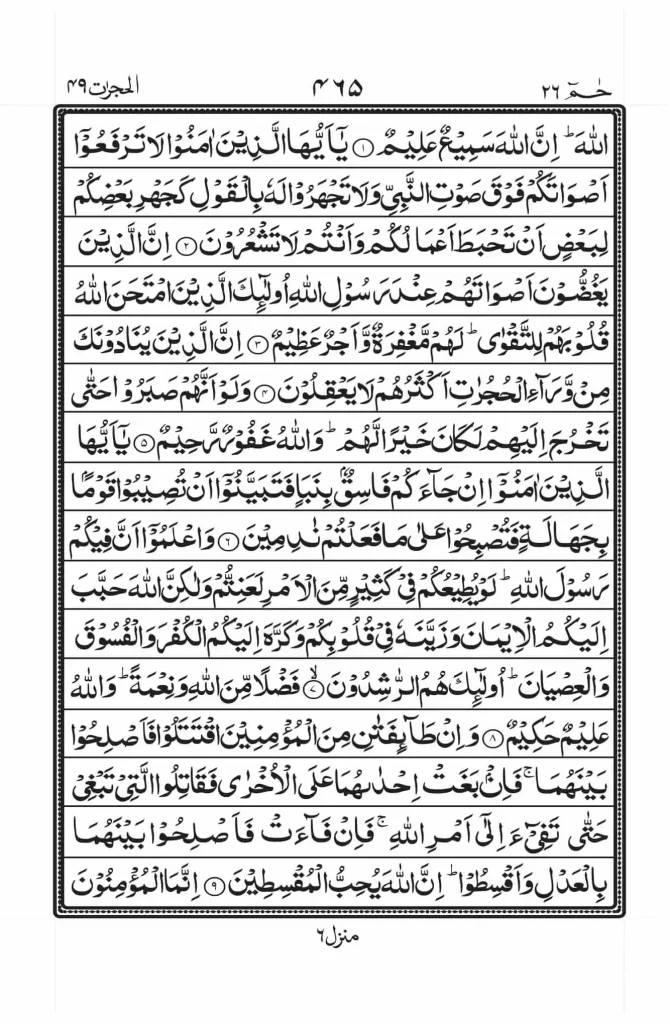 الحجرٰت ۴۹ ۴۶۵ حٰمٓ ۲۶
اللّٰهَ ؕ اِنَّ اللّٰهَ سَمِیْعٌ عَلِیْمٌ ۝۱ یٰۤاَیُّهَا الَّذِیْنَ اٰمَنُوْا لَا تَرْفَعُوْۤا
اَصْوَاتَكُمْ فَوْقَ صَوْتِ النَّبِیِّ وَلَا تَجْهَرُوْا لَهٗ بِالْقَوْلِ كَجَهْرِ بَعْضِكُمْ
لِبَعْضٍ اَنْ تَحْبَطَ اَعْمَالُكُمْ وَاَنْتُمْ لَا تَشْعُرُوْنَ ۝۲ اِنَّ الَّذِیْنَ
یَغُضُّوْنَ اَصْوَاتَهُمْ عِنْدَ رَسُوْلِ اللّٰهِ اُولٰٓئِكَ الَّذِیْنَ امْتَحَنَ اللّٰهُ
قُلُوْبَهُمْ لِلتَّقْوٰی ؕ لَهُمْ مَّغْفِرَةٌ وَّاَجْرٌ عَظِیْمٌ ۝۳ اِنَّ الَّذِیْنَ یُنَادُوْنَكَ
مِنْ وَّرَآءِ الْحُجُرٰتِ اَكْثَرُهُمْ لَا یَعْقِلُوْنَ ۝۴ وَلَوْ اَنَّهُمْ صَبَرُوْا حَتّٰی
تَخْرُجَ اِلَیْهِمْ لَكَانَ خَیْرًا لَّهُمْ ؕ وَاللّٰهُ غَفُوْرٌ رَّحِیْمٌ ۝۵ یٰۤاَیُّهَا
الَّذِیْنَ اٰمَنُوْۤا اِنْ جَآءَكُمْ فَاسِقٌۢ بِنَبَاٍ فَتَبَیَّنُوْۤا اَنْ تُصِیْبُوْا قَوْمًۢا
بِجَهَالَةٍ فَتُصْبِحُوْا عَلٰی مَا فَعَلْتُمْ نٰدِمِیْنَ ۝۶ وَاعْلَمُوْۤا اَنَّ فِیْكُمْ
رَسُوْلَ اللّٰهِ ؕ لَوْ یُطِیْعُكُمْ فِیْ كَثِیْرٍ مِّنَ الْاَمْرِ لَعَنِتُّمْ وَلٰكِنَّ اللّٰهَ حَبَّبَ
اِلَیْكُمُ الْاِیْمَانَ وَزَیَّنَهٗ فِیْ قُلُوْبِكُمْ وَكَرَّهَ اِلَیْكُمُ الْكُفْرَ وَالْفُسُوْقَ
وَالْعِصْیَانَ ؕ اُولٰٓئِكَ هُمُ الرّٰشِدُوْنَ ۝۷ۙ فَضْلًا مِّنَ اللّٰهِ وَنِعْمَةً ؕ وَاللّٰهُ
عَلِیْمٌ حَكِیْمٌ ۝۸ وَاِنْ طَآئِفَتٰنِ مِنَ الْمُؤْمِنِیْنَ اقْتَتَلُوْا فَاَصْلِحُوْا
بَیْنَهُمَا ۚ فَاِنْۢ بَغَتْ اِحْدٰىهُمَا عَلَی الْاُخْرٰی فَقَاتِلُوا الَّتِیْ تَبْغِیْ
حَتّٰی تَفِیْٓءَ اِلٰۤی اَمْرِ اللّٰهِ ۚ فَاِنْ فَآءَتْ فَاَصْلِحُوْا بَیْنَهُمَا
بِالْعَدْلِ وَاَقْسِطُوْا ؕ اِنَّ اللّٰهَ یُحِبُّ الْمُقْسِطِیْنَ ۝۹ اِنَّمَا الْمُؤْمِنُوْنَ
منزل ۶